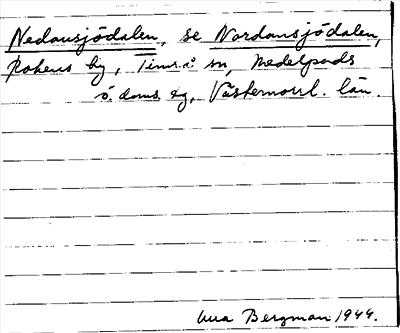 Nedansjödalen, se Nordansjödalen,
by, Timrå sn, Medelpads
ö. doms. tg, Västernorrl. län.
Bergman 1944.